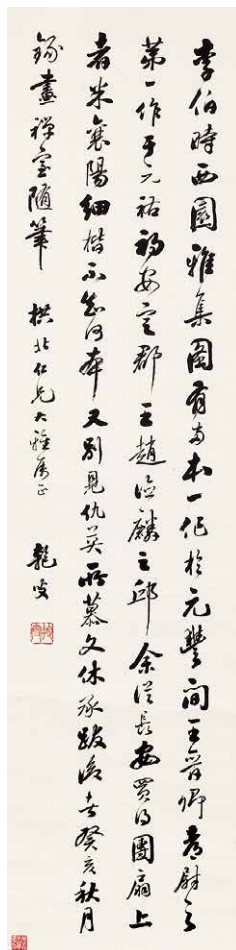 李伯時西園雅集圖有兩本一作於元豐間王晉卿都尉之
第一作于元祐初安定郡王趙德麟之邸余從長安買得團扇上
者米襄陽細楷不知何本又別見仇英所摹文休承跋後者癸亥秋月
錄畫禪室隨筆 拱北仁兄大雅屬正